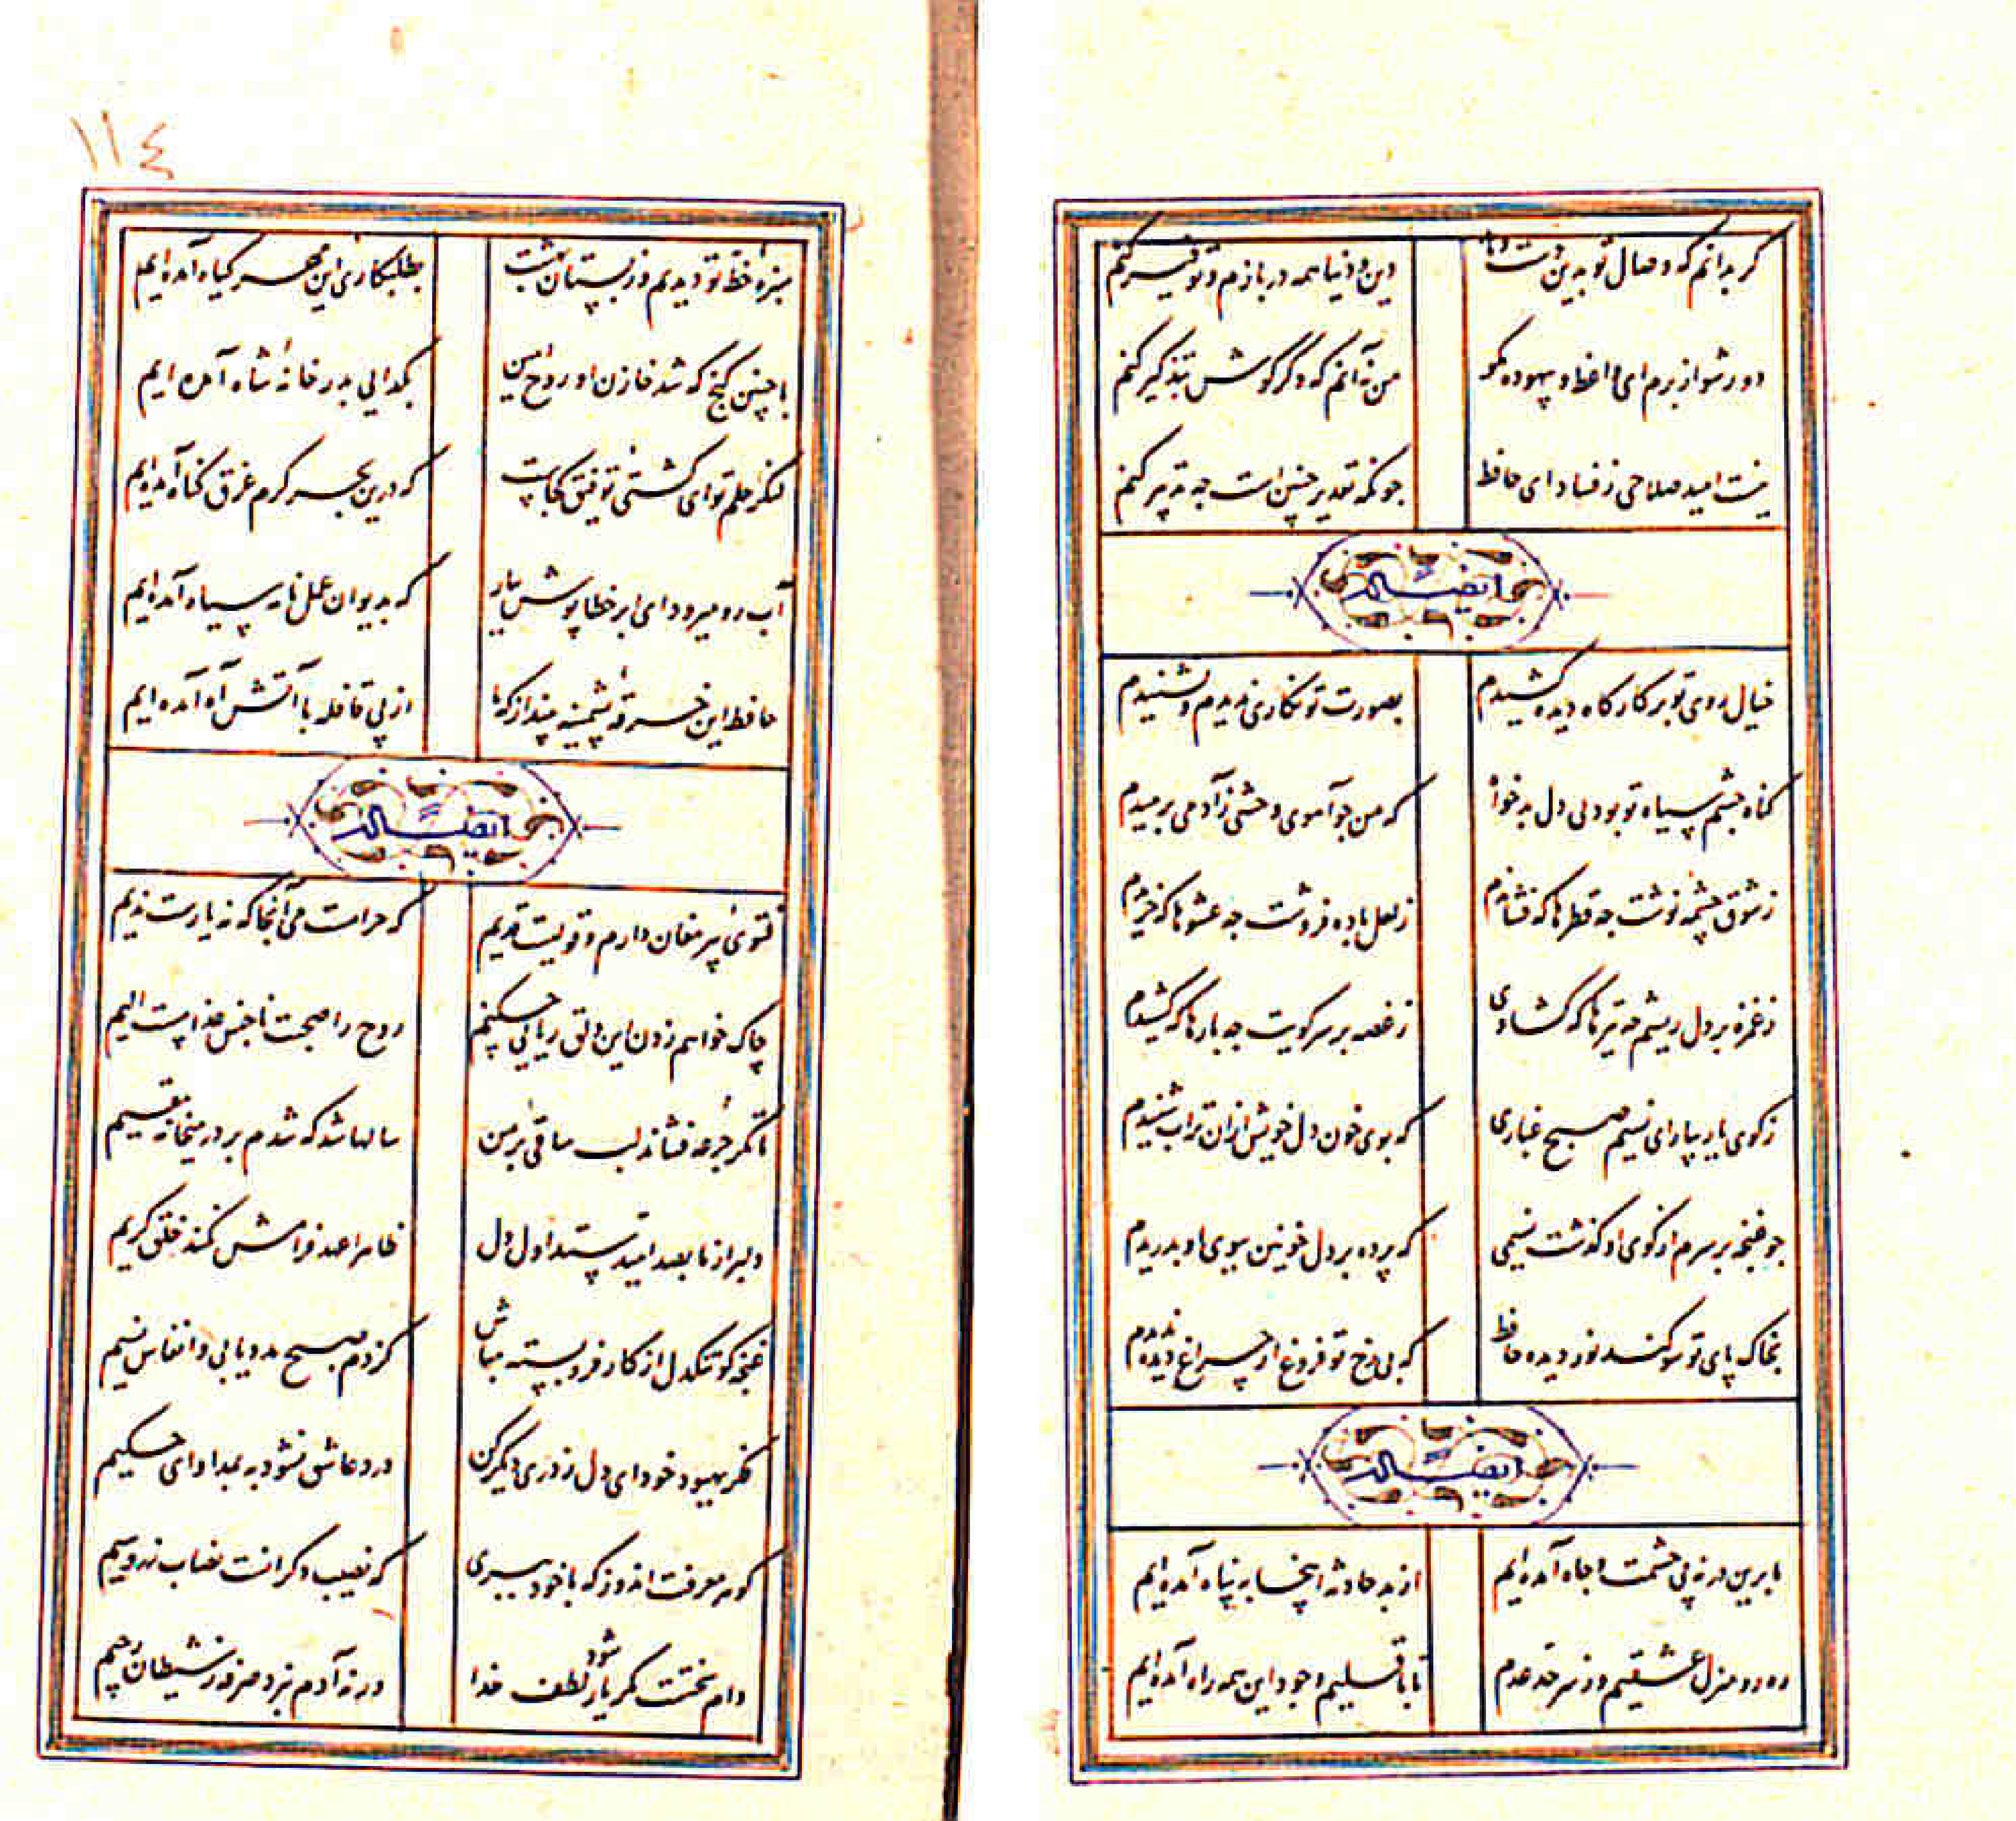 گر بدانم که وصال تو بدین دست دهد
دین و دنیا همه در بازم و توفیر کنم
دور شو از برم ای واعظ و بیهوده مگو
من نه آنم که دگر گوش بتذکیر کنم
نیست امید صلاحی ز فساد ای حافظ
چونکه تقدیر چنین است چه تدبیر کنم
ایضاله
خیال روی تو بر کارگاه دیده کشیدم
بصورت تو نگاری ندیدم و نشنیدم
گناه چشم سیاه تو بود بی دل بدخواه
که من چو آهوی وحشی ز آدمی برمیدم
ز شوق چشمه نوشت چه قطرها که فشاندم
ز لعل باده فروشت چه عشوها که خریدم
ز غمزه بر دل ریشم چه تیرها که گشادی
ز غصه بر سر کویت چه بارها که کشیدم
ز کوی یار بیار ای نسیم صبح غباری
که بوی خون دل خویش از ان تراب شنیدم
چو غنچه بر سرم از کوی او گذشت نسیمی
که پرده بر دل خونین ببوی او بدریدم
بخاک پای تو سوگند نور دیده حافظ
که بی رخ تو فروغ از چراغ دیده ندیدم
ایضاله
ما برین در نه پی حشمت و جاه آمده‌ایم
از بد حادثه اینجا به پناه آمده‌ایم
ره رو منزل عشقیم و ز سر حد عدم
تا باقلیم وجود این همه راه آمده‌ایم
١١٤
سبزه خط تو دیدیم و ز بستان بهشت
بطلبکاری این مهر گیاه آمده‌ایم
با چنین گنج که شد خازن او روح امین
بگدایی بدر خانه شاه آمده ایم
لنگر حلم تو ای کشتی توفیق کجاست
که درین بحر کرم غرق گناه آمده‌ایم
آب رو میرود ای ابر خطاپوش ببار
که بدیوان عمل نامه سیاه آمده‌ایم
حافظ این خرقه پشمینه بینداز که ما
از پی قافله با آتش آه آمده ایم
ایضاله
فتوی پیر مغان دارم و قولیست قدیم
که حرامست می آنجا که نه یارست ندیم
چاک خواهم زدن این دلق ریایی چکنم
روح را صحبت ناجنس عذابیست الیم
تا مگر جرعه فشاند لب ساقی بر من
سالها شد که شدم بر در میخانه مقیم
دلبر از ما بصد امید ستد اول دل
ظاهرا عهد فرامش نکند خلق کریم
غنچه گو تنگدل از کار فروبسته مباش
کز دم صبح مدد یابی و انفاس نسیم
فکر بهبود خود ای دل ز دری دیگر کن
درد عاشق نشود به بمداوای حکیم
گوهر معرفت اندوز که با خود ببری
که نصیب دگرانست نصاب زر و سیم
دام سختست مگر یار شود لطف خدا
ورنه آدم نبرد صرفه ز شیطان رجیم